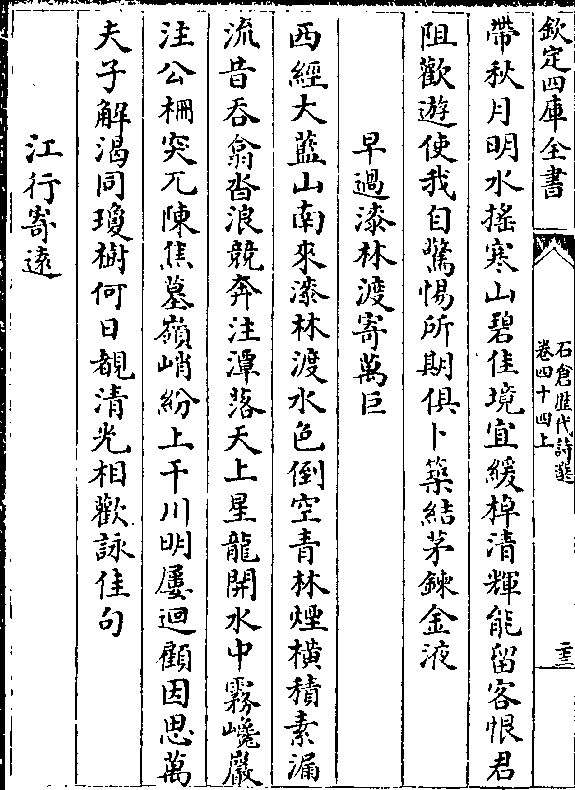 欽定四庫全書
石倉歷代詩選
卷四十四上
二十三
帶秋月明水搖寒山碧佳境宜緩棹清輝能留客恨君
阻歡遊使我自驚惕所期俱卜築結茅鍊金液
早過漆林渡寄萬巨
西經大藍山南來漆林渡水色倒空青林煙橫積素漏
流昔吞翕沓浪競奔注潭落天上星龍開水中霧巉巖
注公柵突兀陳焦墓嶺峭紛上干川明屢迴顧因思萬
夫子解渴同瓊樹何日覩清光相歡詠佳句
江行寄遠